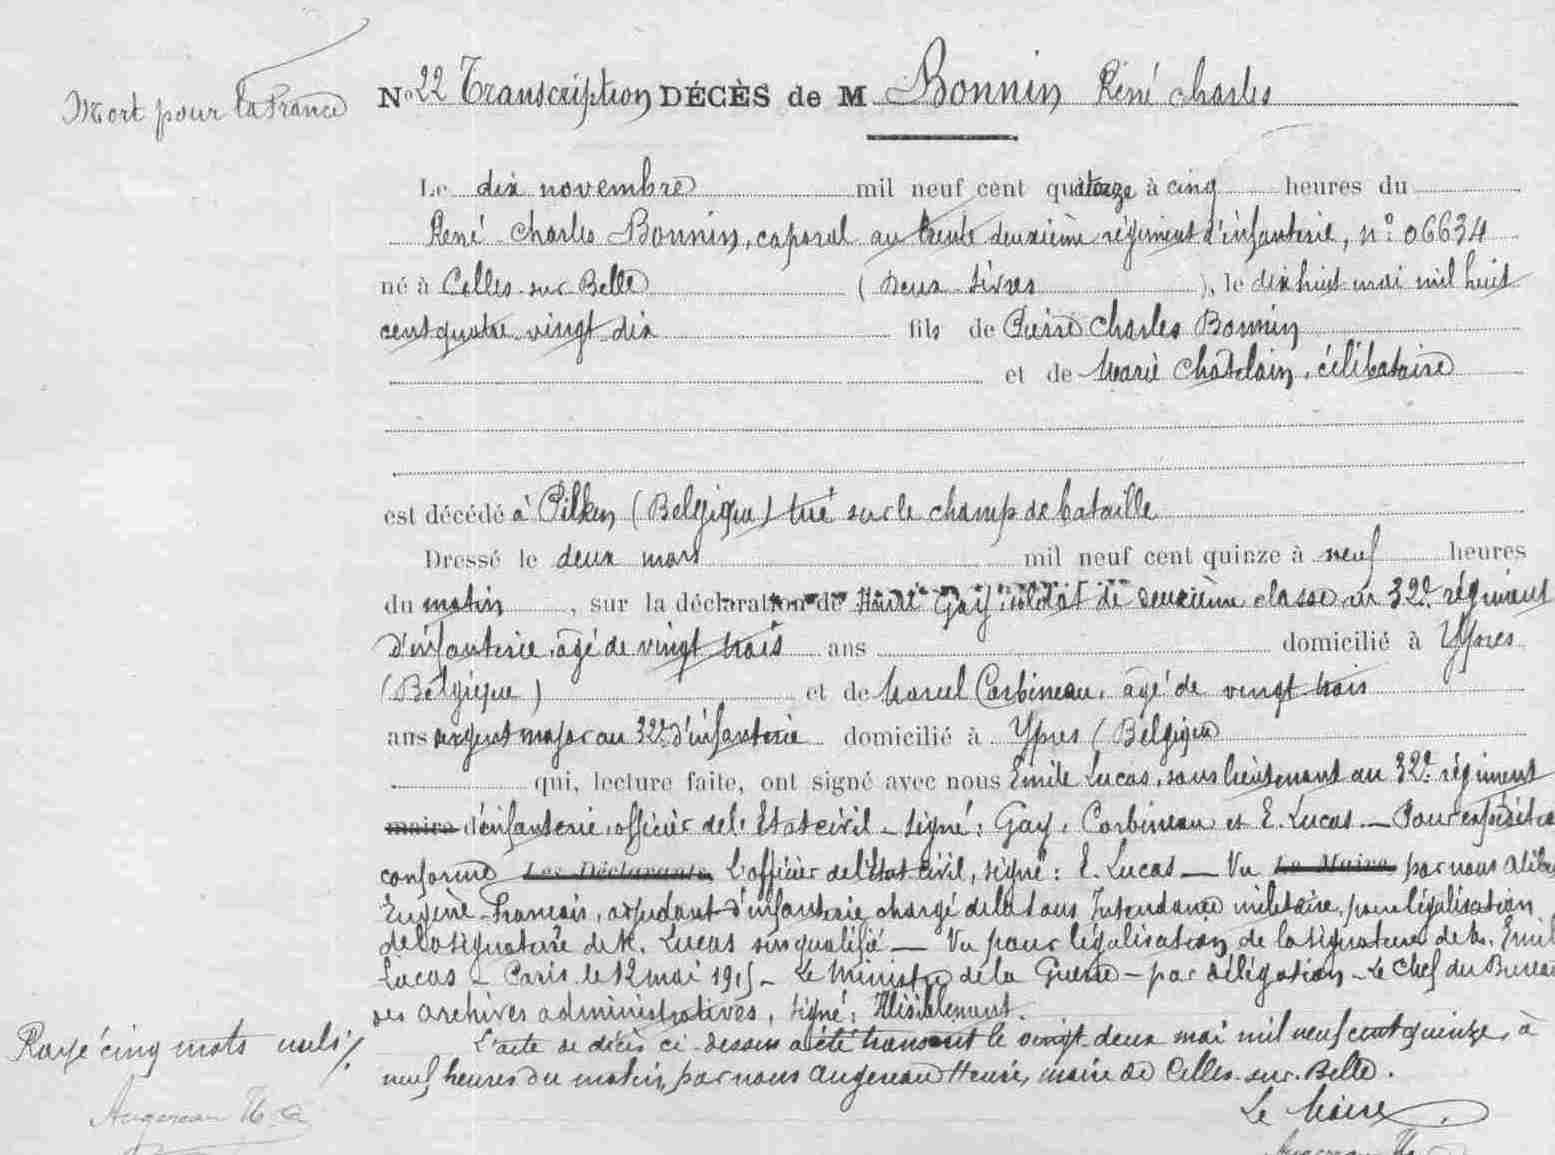 Mort pour la France
No 22 Transcription DÉCÈS de M Bonnin René Charles
Le dix novembre mil neuf cent quatorze à cinq heures du
René Charles Bonnin, caporal au trente deuxième régiment d'infanterie, n° 06634
né à Celles-sur-Belle (Deux-Sèvres), le dix huit mai mil huit
cent quatre vingt dix fils de Pierre Charles Bonnin
et de Marie Chatelain, célibataire
est décédé à Pilken (Belgique) tué sur le champ de bataille
Dressé le deux mars mil neuf cent quinze à neuf heures
du matin, sur la déclaration de Gay soldat de deuxième classe au 32e régiment
d'infanterie, âgé de vingt trois ans domicilié à Ypres
(Belgique) et de Marcel Corbineau, âgé de vingt trois
ans sergent major au 32e d'infanterie domicilié à Ypres (Belgique)
qui, lecture faite, ont signé avec nous Emile Lucas, sous lieutenant au 32e régiment
maire d'infanterie, officier de l'Etat civil - signé: Gay, Corbineau et E. Lucas. - Pour expédition
conforme Les Déclarants L'officier de l'Etat civil, signé: E. Lucas - Vu Le Maire par nous
Eugène François, adjudant d'infanterie chargé de la sous Intendance militaire, pour légalisation
de la signature de M. Lucas sus qualifié - Vu pour légalisation de la signature de M. Emile
Lucas - Paris, le 12 mai 1915 - Le Ministre de la Guerre - par délégation - Le Chef du Bureau
des archives administratives, signé: Illisiblement.
L'acte de décès ci-dessus a été transcrit le vingt deux mai mil neuf cent quinze, à
neuf heures du matin, par nous Augereau Henri, maire de Celles-sur-Belle.
Le Maire
Rayé cinq mots nuls
Augereau H.
Augereau H.